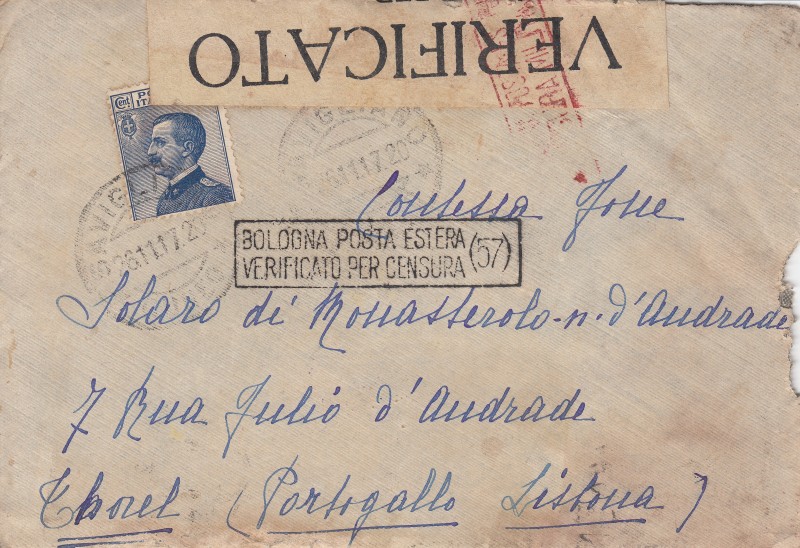 VERIFICATO
Cent. PO
IT
SAVIGLIANO
26.11.17.20
BOLOGNA POSTA ESTERA
VERIFICATO PER CENSURA (57)
Contessa Jone
Solaro di Monasterolo-n. d'Andrade
7 Rua Julio d'Andrade
Thorel (Portogallo Lisbona)